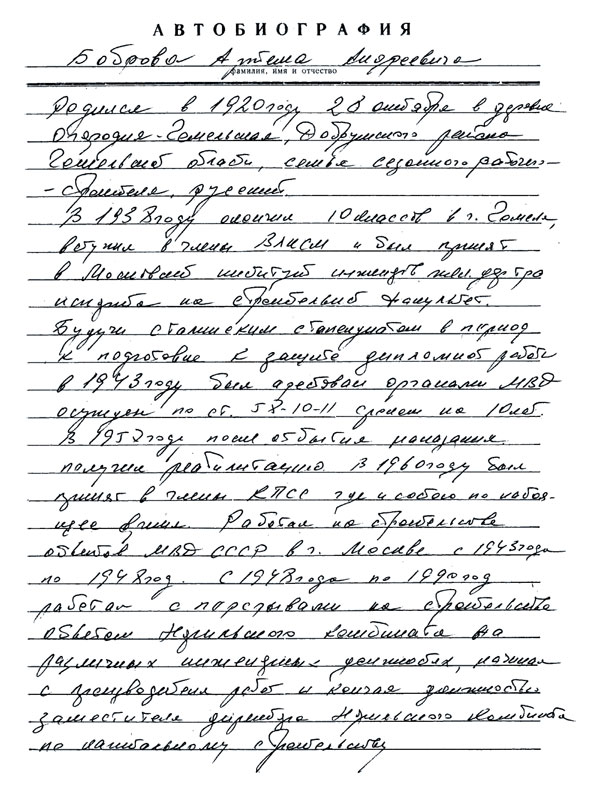 АВТОБИОГРАФИЯ
Боброва Артема Андреевича
фамилия, имя и отчество
Родился в 1920 году 28 октября в деревне
Огородня-Гомельская, Добрушского района
Гомельской области, семья сезонного рабочего-
-строителя, русский.
В 1938 году окончил 10 классов в г. Гомеле,
вступил в члены ВЛКСМ и был принят
в Московский институт инженеров жел. дор. тра
на строительный факультет.
Будучи сталинским стипендиатом в период
к подготовке к защите дипломной работы
в 1943 году был арестован органами МВД
осужден по ст. 58-10-11 сроком на 10 лет.
В 1958 году после отбытия наказания
получил реабилитацию. В 1960 году был
принят в члены КПСС где и состою по настоя-
щее время. Работал на строительстве
объектов МВД СССР в г. Москве с 1943 года
по 1948 год. С 1948 года по 1990 год
работал с перерывами на строительстве
объектов Норильского комбината на
различных инженерных должностях, начиная
с производителя работ и кончая должностью
заместителя директора Норильского комбината
по капитальному строительству